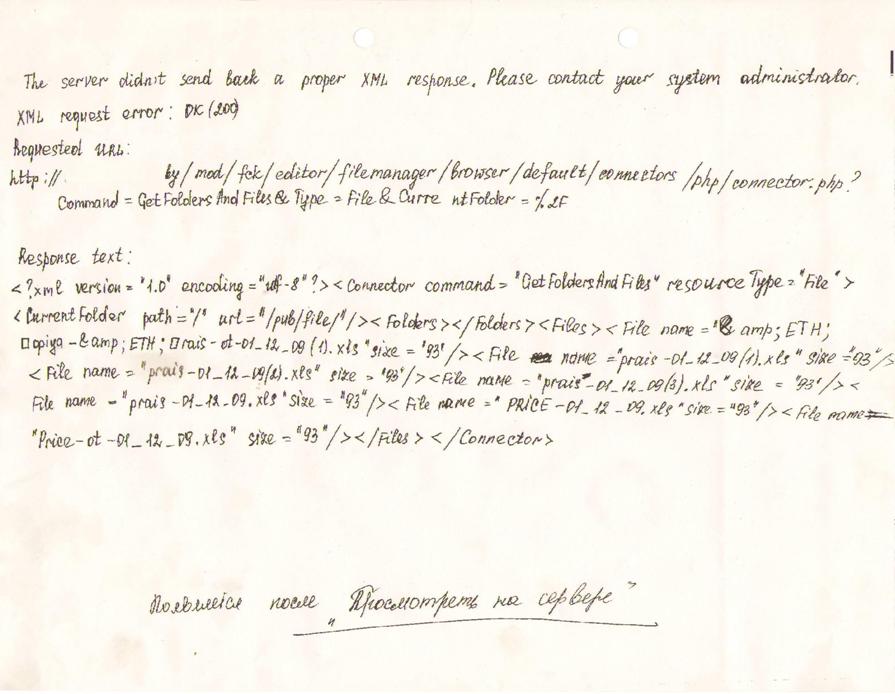 The server didn't send back a proper XML response. Please contact your system administrator.
XML request error: OK (200)
Requested URL:
http:// by/mod/fck/editor/filemanager/browser/default/connectors/php/connector.php?
Command = GetFoldersAndFiles & Type = File & Curre ntFolder = %2F
Response text:
<?xml version = "1.0" encoding = "utf-8" ?><Connector command = "GetFoldersAndFiles" resourceType = "File">
<CurrentFolder path = "/" url = "/pub/file/"/><Folders></Folders><Files><File name = "& amp; ETH;
□opiya - & amp; ETH; □rais - ot-01_12_09(1).xls" size = "93"/><File name = "prais-01_12_09(1).xls" size = "93"/>
<File name = "prais-01_12_09(2).xls" size = "93"/><File name = "prais-01_12_09(3).xls" size = "93"/><
File name = "prais-01_12_09.xls" size = "93"/><File name = "PRICE-01_12_09.xls" size = "93"/><File name =
"Price-ot-01_12_09.xls" size = "93"/></Files></Connector>
после "Просмотреть на сервере"